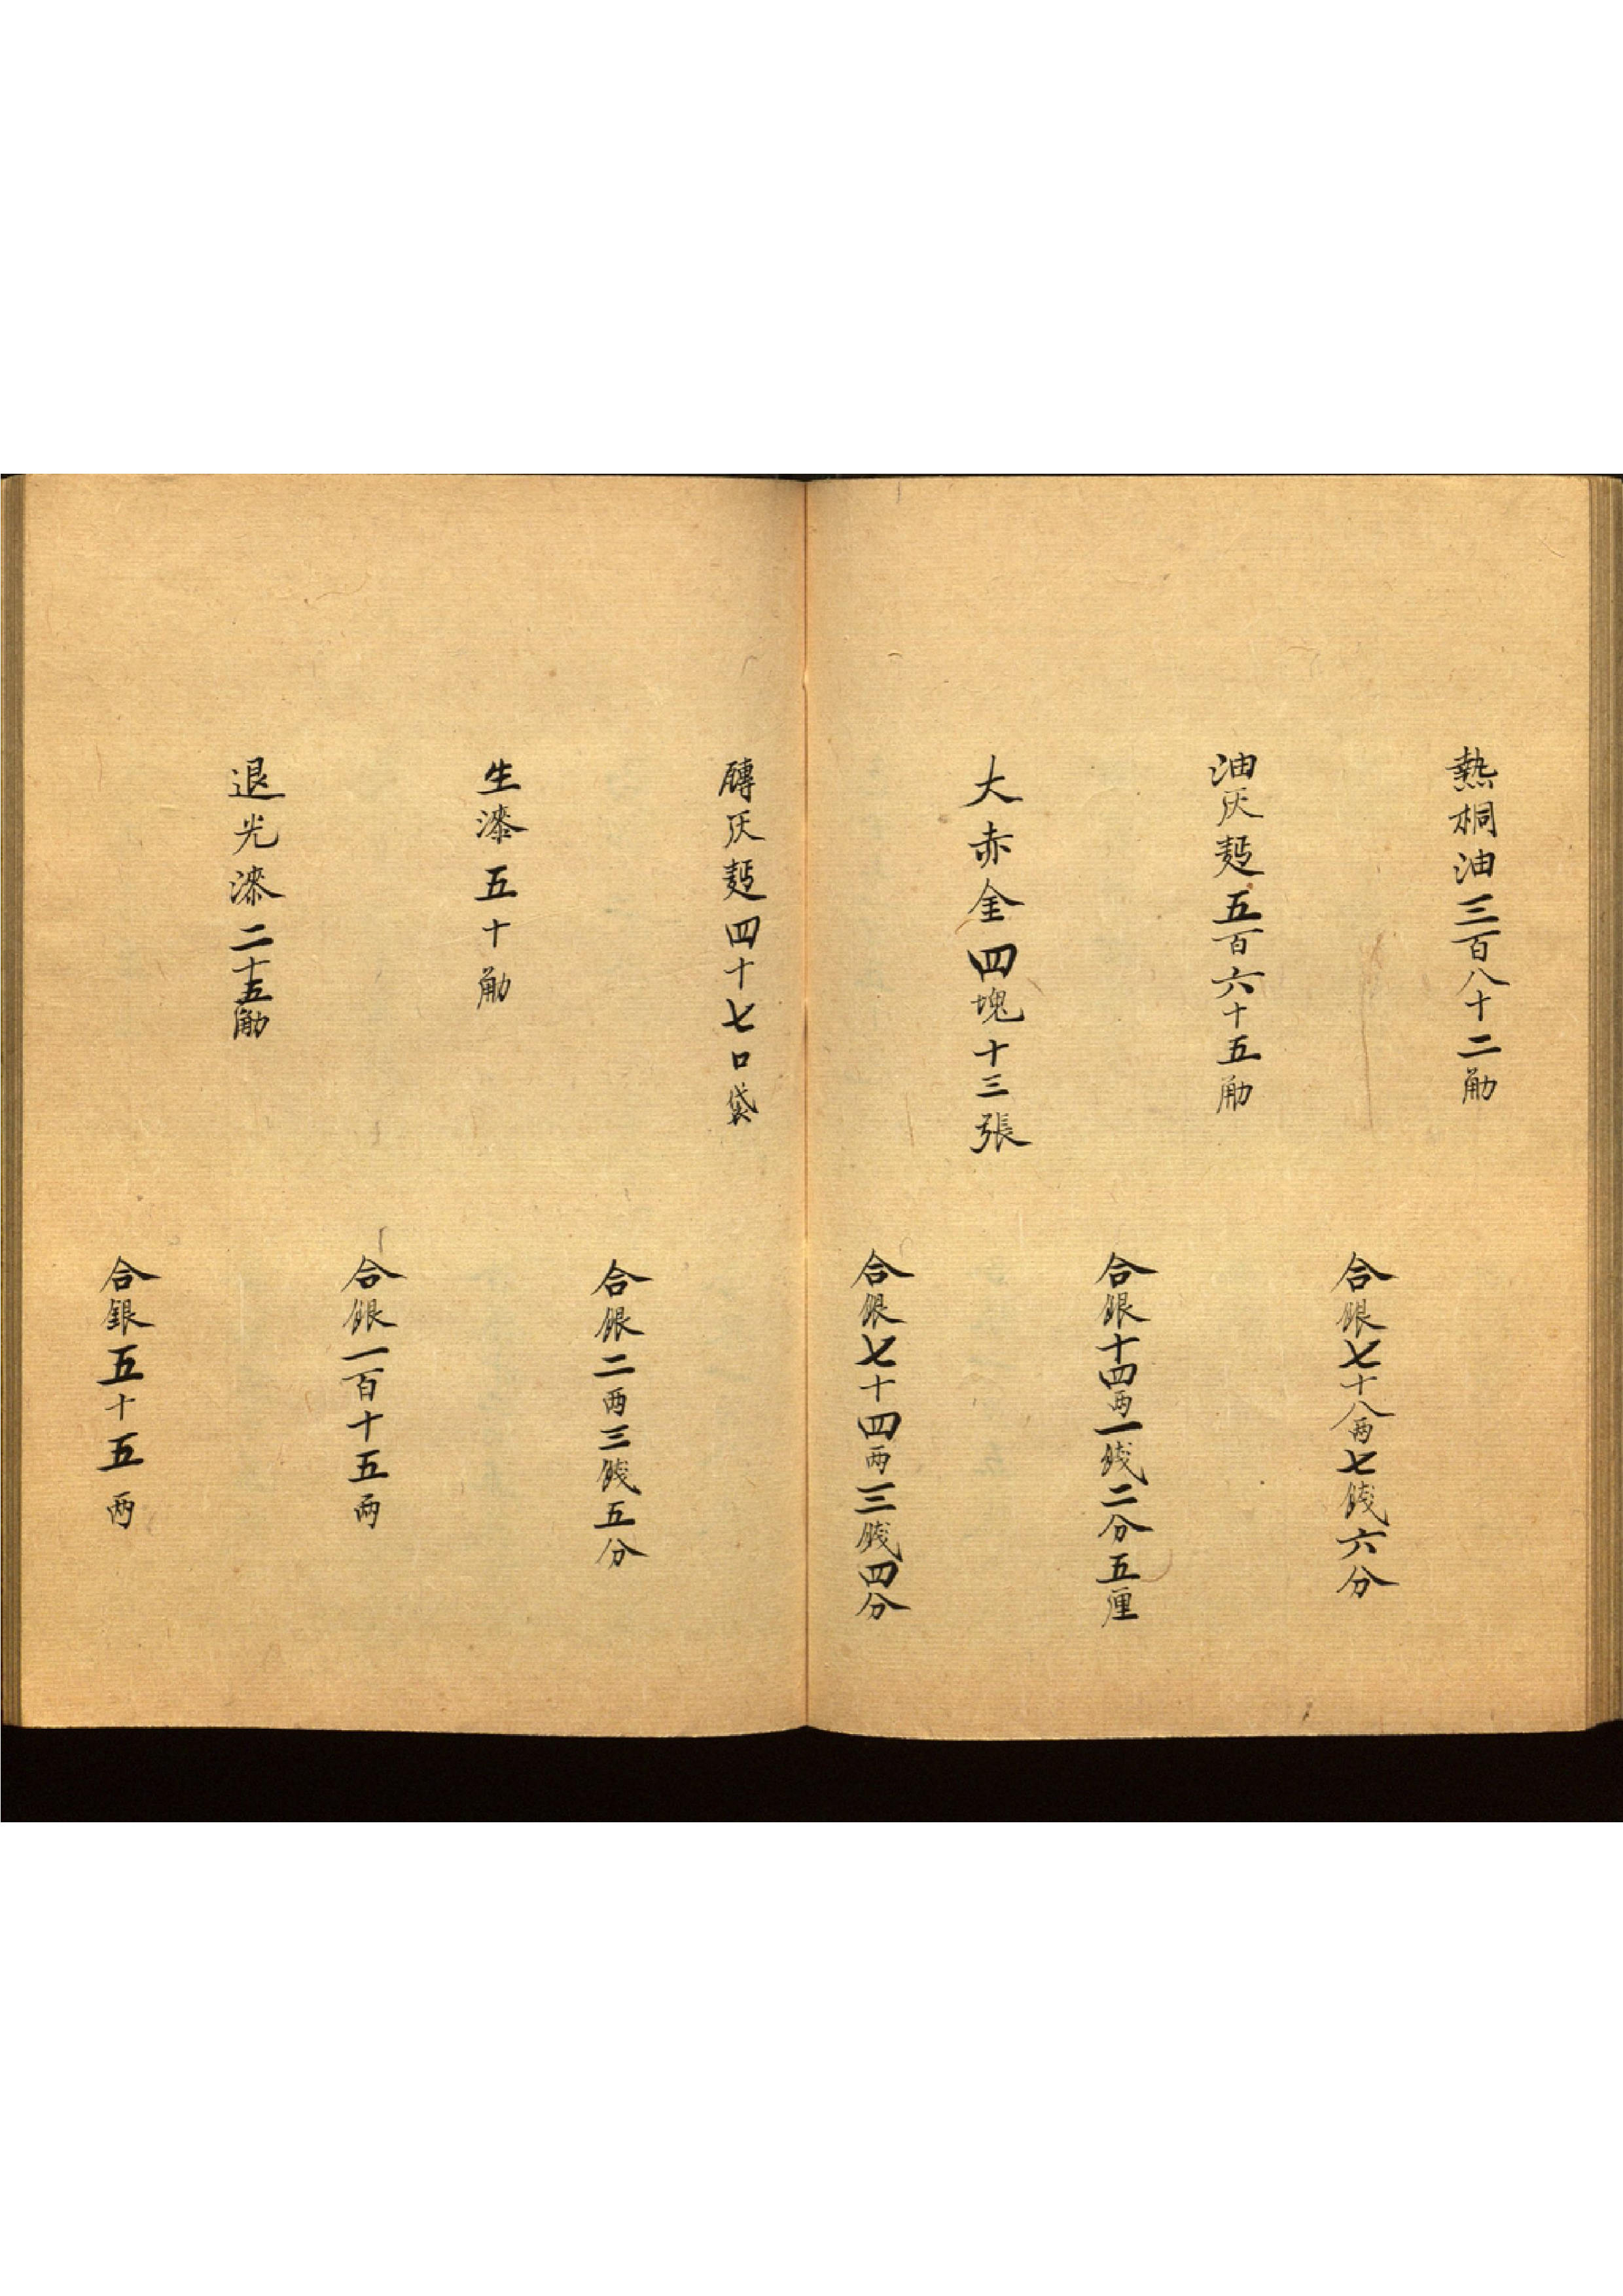 熟桐油三百八十二觔
合銀七十八两七錢六分
油灰麫五百六十五觔
合銀十四两一錢二分五厘
大赤金四塊十三張
合銀七十四两三錢四分
磚灰麫四十七口袋
合銀二两三錢五分
生漆五十觔
合銀一百十五两
退光漆二十五觔
合銀五十五两